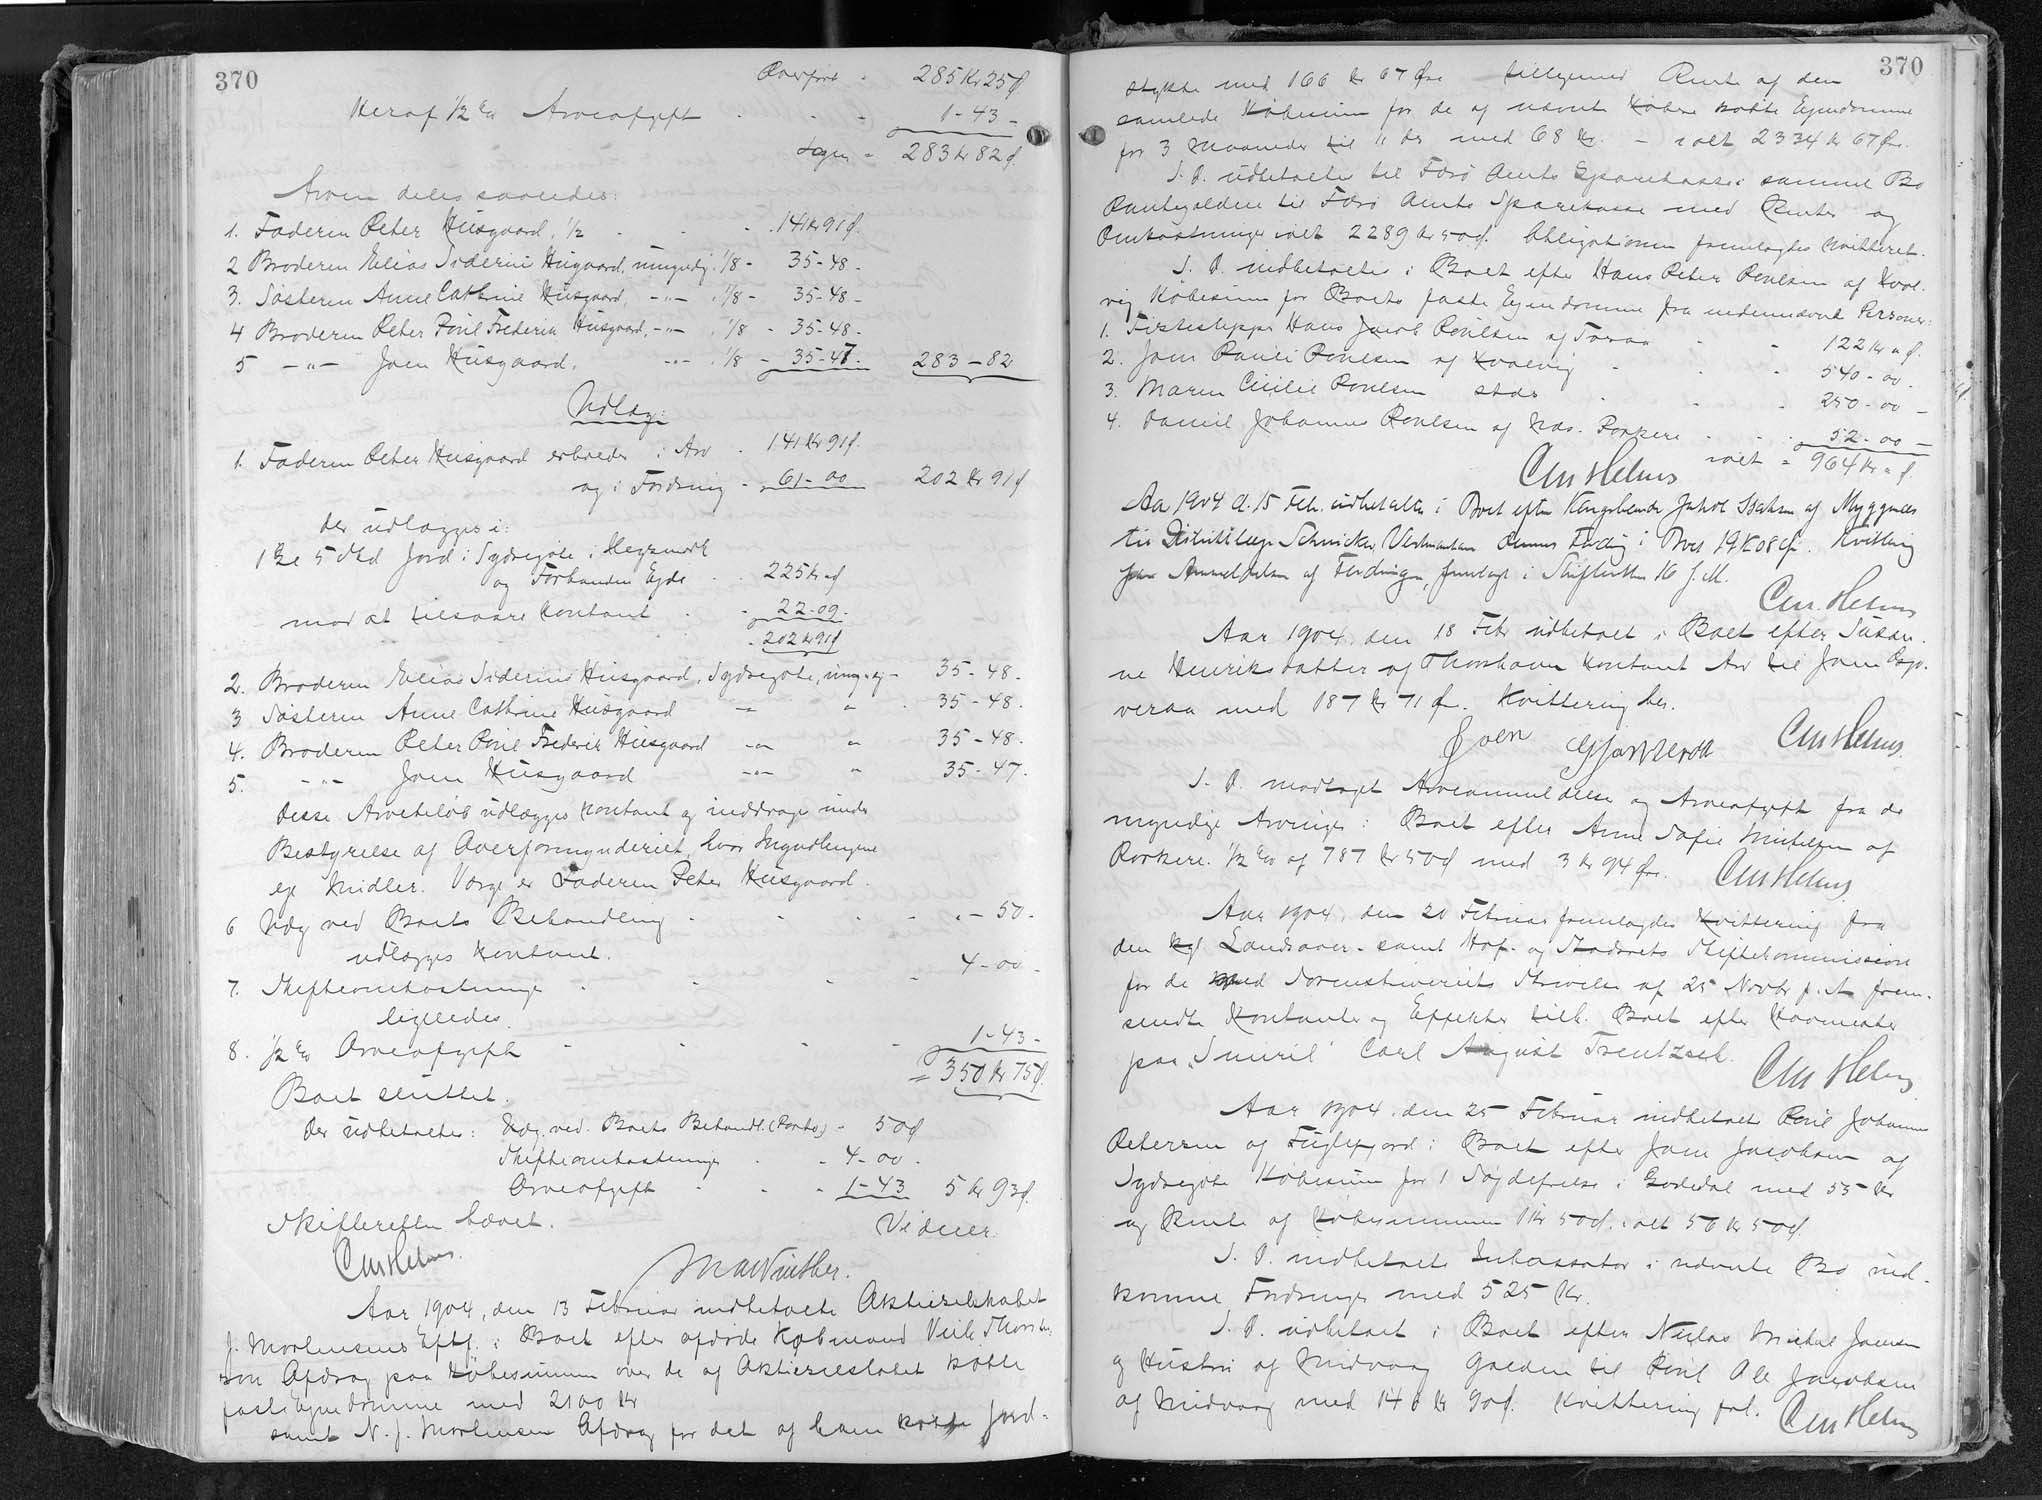 370
Overført - 285 Kr 25 Ø
Heraf 1/2 % Arveafgift - - - 1 - 43 -
Igen = 283 Kr 82 Ø.
Arven deles saaledes:
1. Faderen Peter Husgaard, 1/2 - - - 141 Kr 91 Ø.
2 Broderen Elias Siderius Husgaard, umyndig. 1/8 - 35 - 48 -
3. Søsteren Anne Cathrine Husgaard, -"- . 1/8 - 35 - 48 -
4 Broderen Peter Poul Frederik Husgaard, -"- . 1/8 - 35 - 48 -
5 -"- Joen Husgaard, -"- . 1/8 - 35 - 47 - 283 - 82
Udlæg:
1. Faderen Peter Husgaard erholder i Arv - 141 Kr 91 Ø.
og i Fordring - 61 - 00 202 Kr 91 Ø
der udlægges i:
5 Jord i Sydregøte i
og Forhaanden - - 225 Kr " Ø
mod at tilsvare Kontant - - 22 - 09 -
202 Kr 91 Ø
2. Broderen Elias Siderius Husgaard, Sydregøte, umyndig - 35 - 48 -
3 Søsteren Anne Cathrine Husgaard -"- " - 35 - 48 -
4. Broderen Peter Poul Frederik Husgaard -"- " 35 - 48 -
5. -"- Joen Husgaard -"- " 35 - 47 -
Disse Arvebeløb udlægges kontant og inddrages under
Bestyrelse af Overformynderiet, hvor Myndlingene
ej Midler. Værge er Faderen Peter Husgaard.
6 Udg ved Boets Behandling - - - - " - 50 -
udlægges Kontant.
7. Skifteomkostninger - - - - 4 - 00 -
ligeledes.
8. 1/2 % Arveafgift - - - - 1 - 43 -
= 350 Kr 75 Ø.
Boet sluttet.
Der udbetaltes: Udg. ved. Boets Behandl. (Porto) - 50 Ø
Skifteomkostninger - - 4 - 00 -
Arveafgift - - - 1 - 43 5 Kr 93 Ø.
Skifteretten hævet.
Vidner.
Chr Helms
M A Winther.
Aar 1904, den 13 Februar indbetalte Aktieselskabet
J. Mortensens Eftf. i Boet efter afdøde Købmand
Afdrag paa Købesummen over de af Aktieselskabet købte
faste Ejendomme med 2100 Kr
samt N. J. Mortensen Afdrag for det af ham købte Jord-
370
stykke med 166 Kr 67 Øre tilligemed Rente af den
samlede Købesum for de af nævnte Købere købte Ejendomme
for 3 Maaneder til 11 ds med 68 Kr. - ialt 2334 Kr 67 Øre.
S. D. udbetaltes til Færø Amts Sparekasse i samme Bo
Pantegælden til Færø Amts Sparekasse med Renter og
Omkostninger ialt 2289 Kr 50 Ø. Obligationen fremlagdes kvitteret.
S. D. indbetaltes i Boet efter Hans Peter Poulsen af Kval-
vig Købesum for Boets faste Ejendomme fra nedennævnte Personer:
1. Hans Jacob Poulsen af - - 122 Kr " Ø.
2. Jens Poulsen af Kvalvig - - - 540 - 00 -
3. Maren Cicilie Poulsen stds - - - 250 - 00 -
4. Daniel Johannes Poulsen af Næs. Porkere - - - 52 - 00 -
ialt = 964 Kr " Ø.
Chr Helms
Aar 1904 d. 15 Feb. udbetaltes i Boet efter Kongsbonde Jakob Isaksen af Myggenæs
til Distriktslæge Vestmanhavn dennes Fordring i Boet 19 K 08 Ø. Kvittering
paa Anmeldelsen af Fordringen, fremlagt i Skifteretten 16 f. M.
Chr. Helms
Aar 1904, den 18 Febr udbetalt i Boet efter Susan-
ne Henriksdatter af Thorshavn kontant Arv til Joen
med 187 Kr 71 Øre. Kvittering her.
Joen
Chr Helms.
S. D. modtaget Arveanmeldelse og Arveafgift fra de
myndige Arvinger i Boet efter Anne Sofie af
Porkere. 1/2 % af 787 Kr 50 Ø med 3 Kr 94 Øre.
Chr Helms
Aar 1904, den 20 Februar fremlagdes Kvittering fra
den kgl Landsover- samt Hof- og Stadsrets Skiftekommission
for de med Sorenskriveriets Skrivelse af 25 Novbr f. A. frem-
sendte Kontanter og Effekter tilh. Boet efter
paa "Smiril" Carl August
Chr Helms
Aar 1904, den 25 Februar indbetalt Poul Johannes
Petersen af Fuglefjord i Boet efter Joen Jacobsen af
Sydregøte Købesum for 1 i med 55 Kr
og Rente af Købesummen 1 Kr 50 Ø. ialt 56 Kr 50 Ø.
S. D. indbetalte Inkassator i nævnte Bo ind-
komne Fordringer med 525 Kr.
S. D. udbetalt i Boet efter Niclas Michal Joensen
og Hustru af Midvaag Gælden til Poul Ole Jacobsen
af Midvaag med 146 Kr 90 Ø. Kvittering fol.
Chr Helms